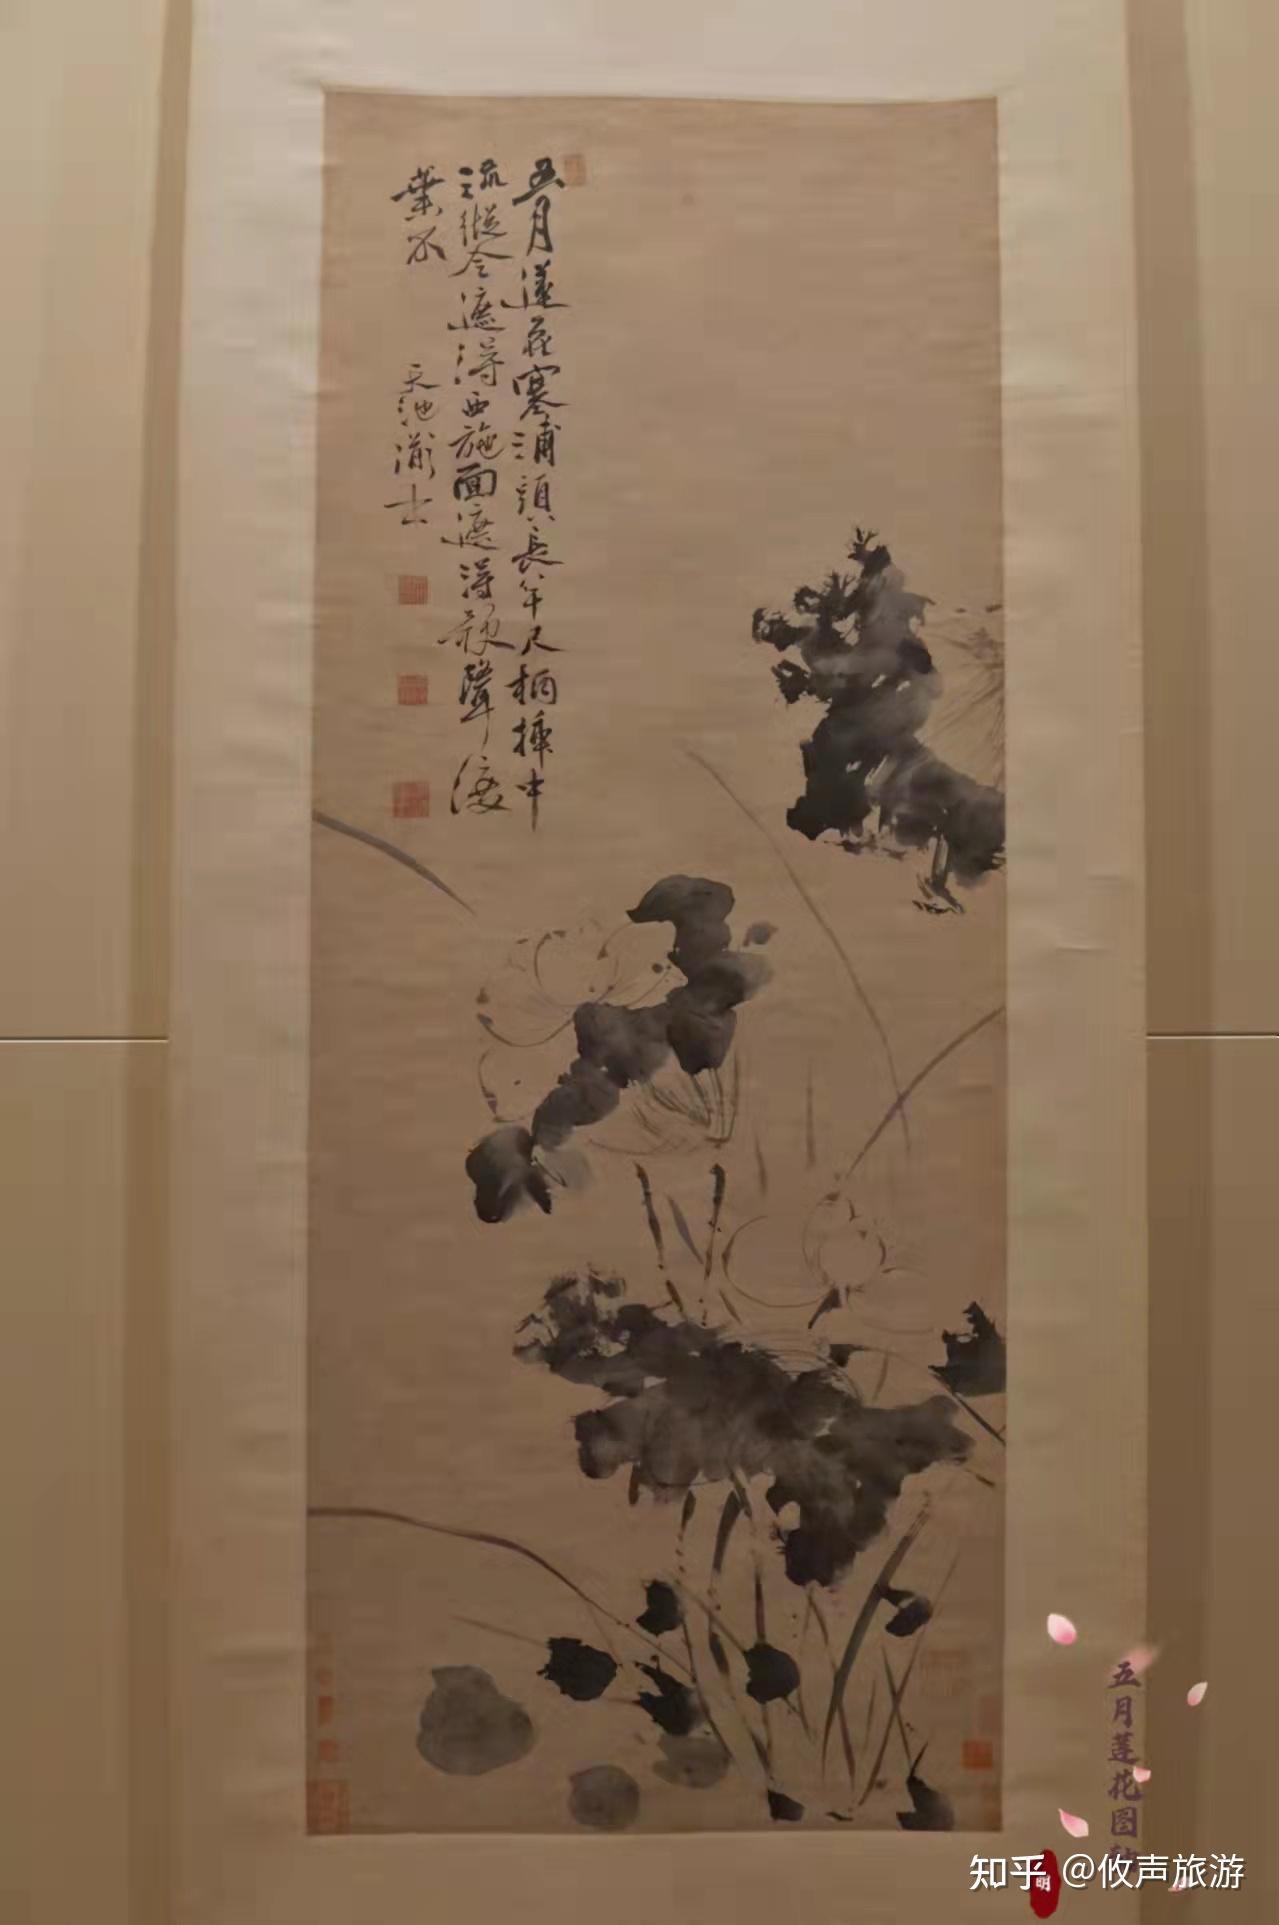 五月蓮花塞浦頭長竿尺柄挿中
流縱令遮得西施面遮得歌聲渡
葉不
天池漱士
五月莲花图轴
明
知乎 @攸声旅游